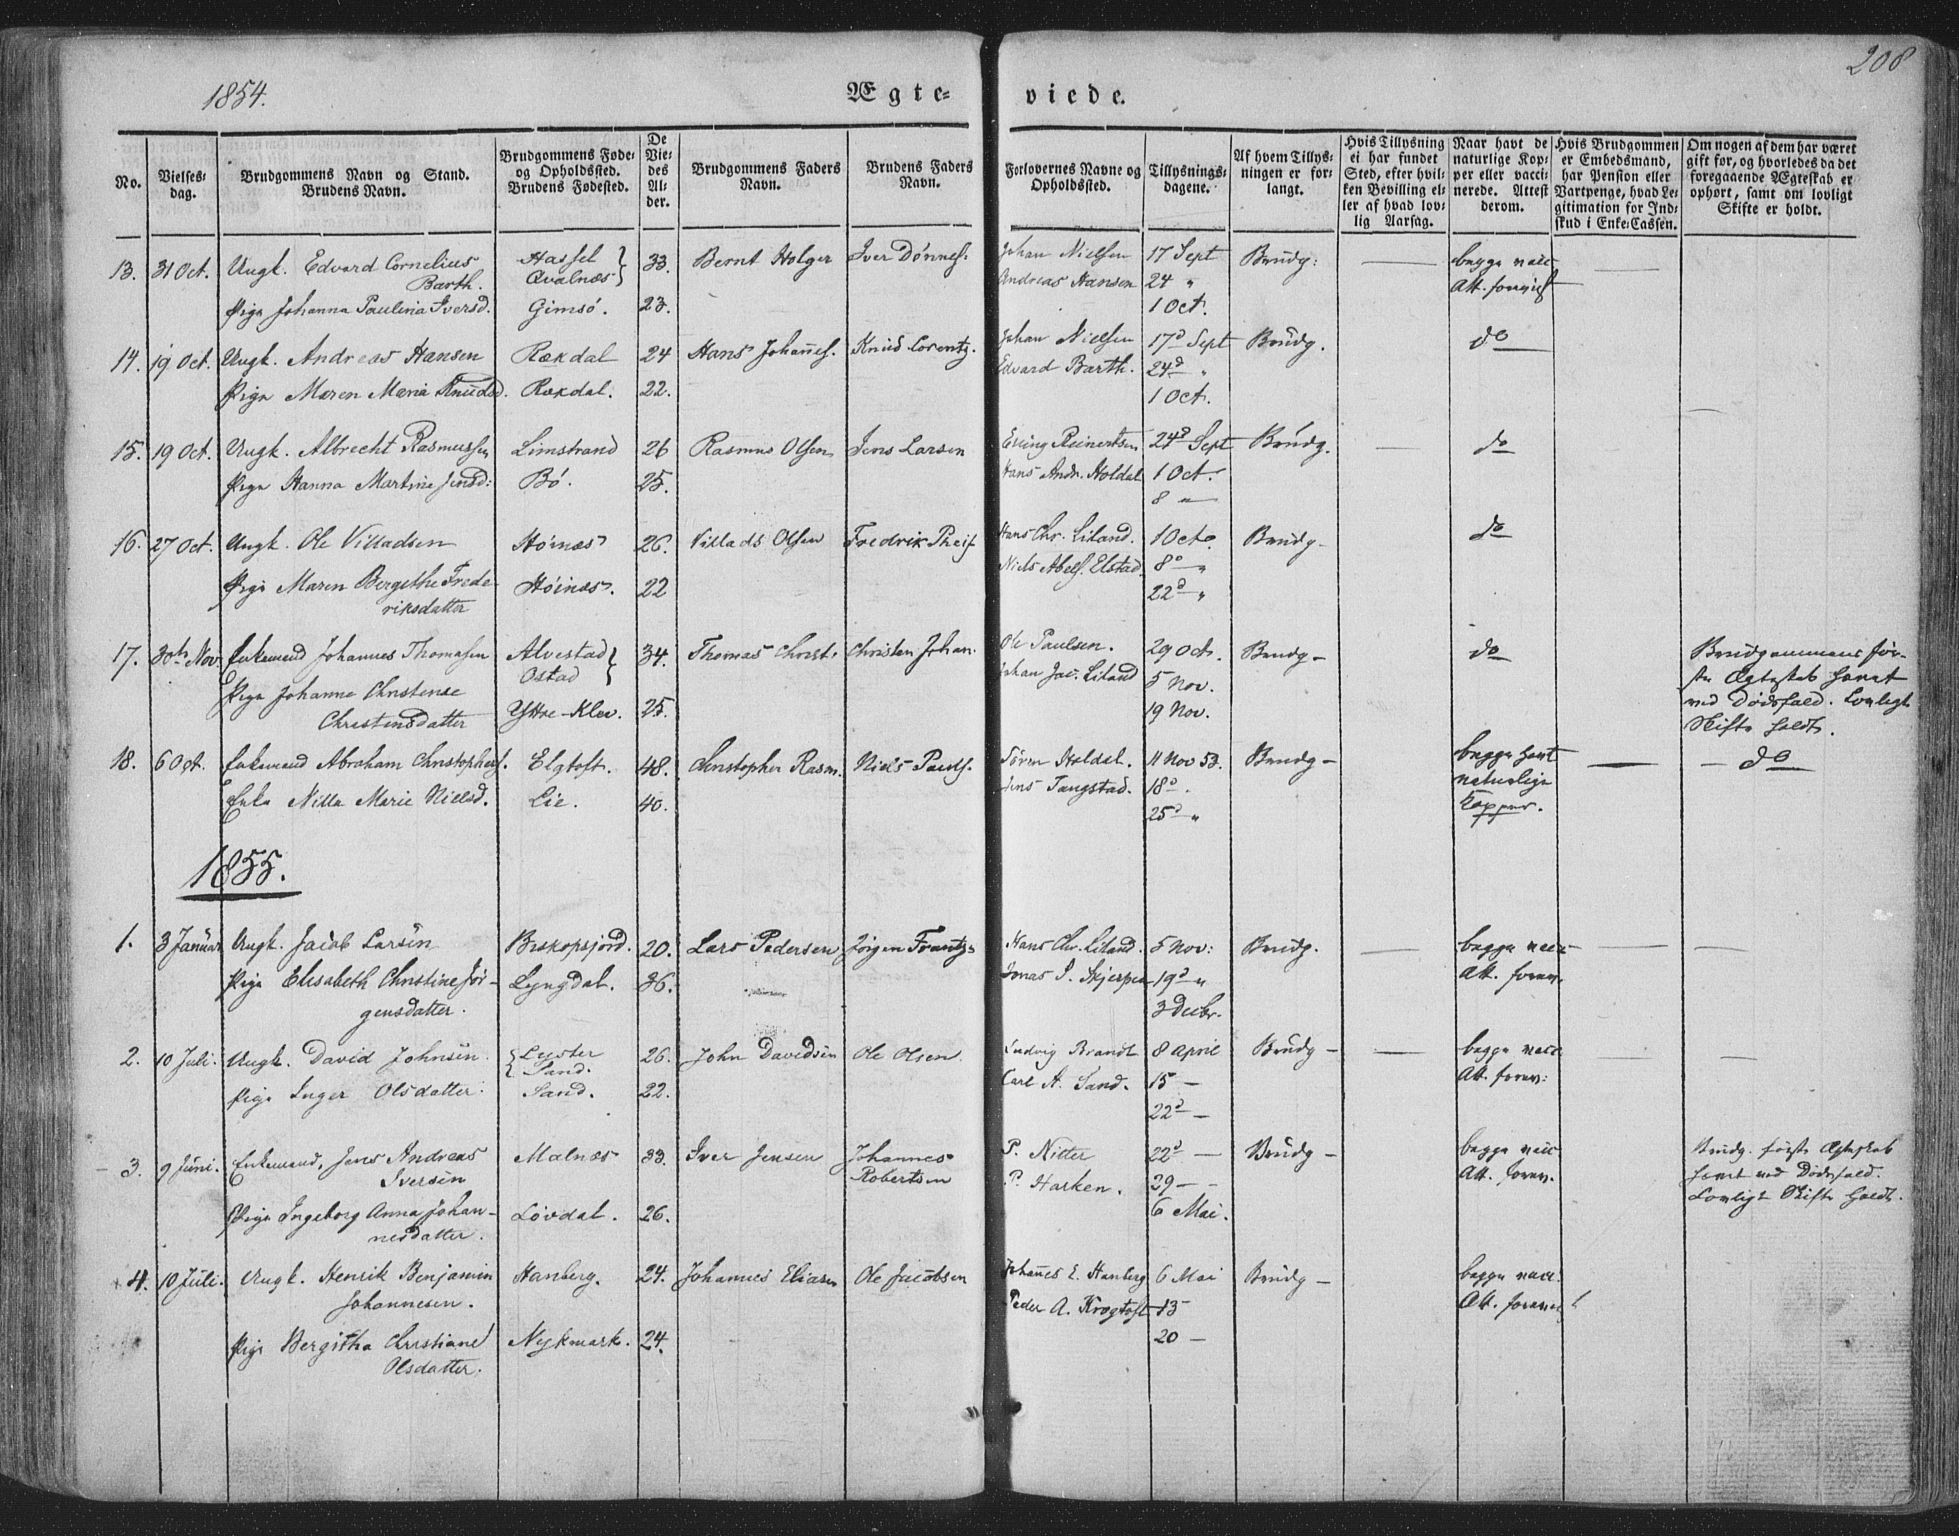 208
1854.
Ægte-
viede.
No.
Vielses-
dag.
Brudgommens Navn og Stand.
Brudens Navn.
Brudgommens Føde-
og Opholdssted.
Brudens Fødested.
De
Vie-
des
Al-
der.
Brudgommens Faders
Navn.
Brudens Faders
Navn.
Forlovernes Navne og
Opholdssted.
Tillysnings-
dagene.
Af hvem Tillys-
ningen er for-
langt.
Hvis Tillysning
ei har fundet
Sted, efter hvil-
ken Bevilling el-
ler af hvad lov-
lig Aarsag.
Naar havt de
naturlige Kop-
per eller vacci-
nerede. Attest
derom.
Hvis Brudgommen
er Embedsmand,
har Pension eller
Vartpenge, hvad Le-
gitimation for Ind-
skud i Enke-Cassen.
Om nogen af dem har været
gift før, og hvorledes da det
foregaaende Ægteskab er
ophørt, samt om lovligt
Skifte er holdt.
13. 31 Oct. Ungk. Edvard Cornelius Hassel 33. Bernt Holger Iver Dønnes. Johan Nielsen 17 Sept Brudg: begge vacc
Barth. Qvalnæs Andreas Hansen 24 " Att. forevist
Pige Johanna Paulina Iversd. Gimsö. 23. 1 Oct.
14. 19 Oct. Ungk. Andreas Hansen Rækdal 24 Hans Johannes. Knud Lorentz. Johan Nielsen 17d Sept Brudg. do
Edvard Barth. 24d "
Pige Maren Maria Knudsd. Rækdal. 22. 1 Oct.
15. 19 Oct. Ungk. Albrecht Rasmussen Limstrand 26 Rasmus Olsen Jens Larsen Erling Reinertsen 24d Sept Brudg. do
Pige Hanna Martine Jensd: Bö. 25. Hans Andr. Holdal 1 Oct.
8 "
16. 27 Oct. Ungk. Ole Villadsen Höinæs 26. Villads Olsen Fredrik Hans Chr. Liland. 1 Oct. Brudg- do
Niels Abels. Elstad. 8d "
Pige Maren Bergethe Frede- Höinæs. 22 22d "
riksdatter
17. 30te Nov Enkemand Johannes Thomasen Alvestad 34. Thomas Christ. Christen Johan. Ole Paulsen. 29 Oct. Brudg- do Brudgommens før-
Ostad Johan Jac. Liland 5 Nov. ste Ægteskab hævet
Pige Johanna Christense Yttre-Klev. 25. 19 Nov. ved Dødsfald. Lovligt
Christensdatter Skifte holdt.
18. 6 Oct. Enkemand Abraham Christophers. Elgtoft. 48. Christopher Rasm. Niels Pauls. Sören Haldal. 11 Nov 53. Brudg- begge havt do
Enke Nilla Marie Nielsd. Lie. 40. Jens Tangstad. 18d. naturlige
25d " Kopper.
1855.
1. 3 Januar Ungk. Jacob Larsen Biskopsjord. 20. Lars Pedersen Jörgen Frantz- Hans Chr. Liland. 5 Nov: Brudg. begge vacc
Pige Elisabeth Christine Jör- Lyngdal. 36. Jonas J. Skjerpen 19d " Att. forev.
gensdatter. 3 Decbr.
2. 10 Juli. Ungk. David Johnsen Luster 26. John Davidsen Ole Olsen Ludvig Brandt 8 April Brudg- begge vacc
Sand.
Pige Inger Olsdatter. Sand. 22. Carl A. Sand. 15 - Att. forev:
22d -
3. 9 Juni. Enkemand, Jens Andreas Malnæs 33. Iver Jensen Johannes P. Nitter 22d - Brudg- begge vacc Brudg. første Ægteskab
Iversen Robertsen P. Harken. 29 - Att. forev. hævet ved Dødsfald.
Pige Ingeborg Anna Johan- Lövdal. 26. 6 Mai. Lovligt Skifte holdt.
nesdatter.
4. 10 Juli. Ungk. Henrik Benjamin Hanberg. 24. Johannes Eliasen Ole Jacobsen Johannes E. Hanberg 6 Mai Brudg- begge vacc.
Johannesen. Peder A. Krogtoft 13 Att. forevist
Pige Bergitha Christiane Nykmark. 24. 20 -
Olsdatter.